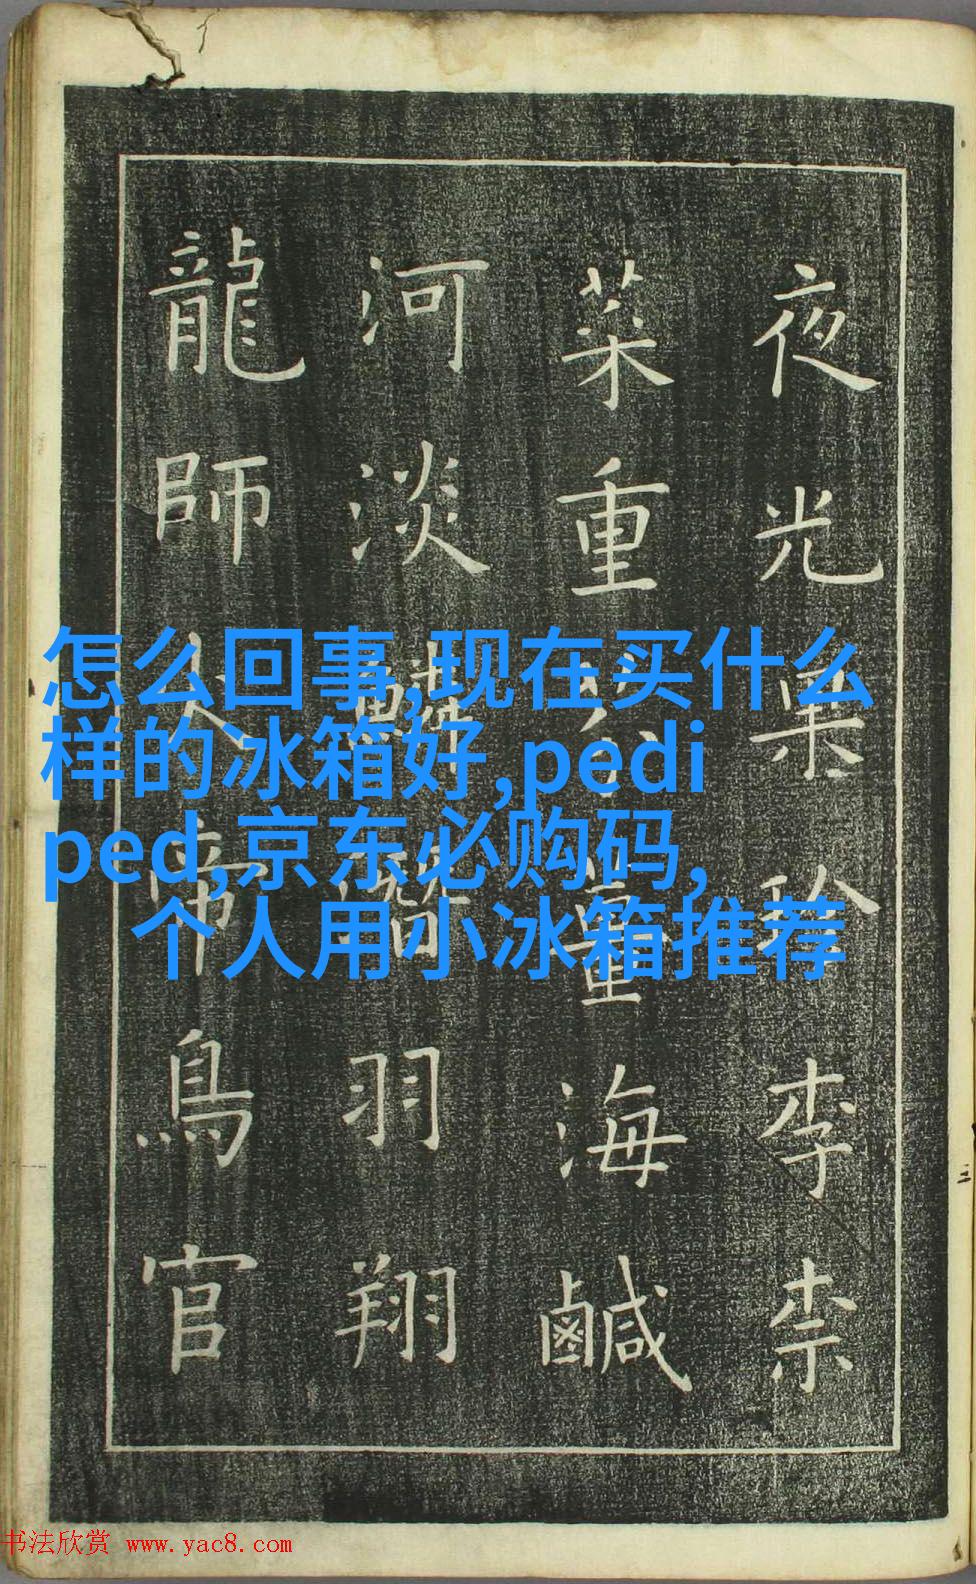 夜光果珍李柰
菜重薑海鹹
河淡鱗潛羽翔
龍師火帝鳥官
怎么回事,现在买什么
样的冰箱好,pedi
ped,京东必购码,
个人用小冰箱推荐
书法欣赏 www.yac8.com